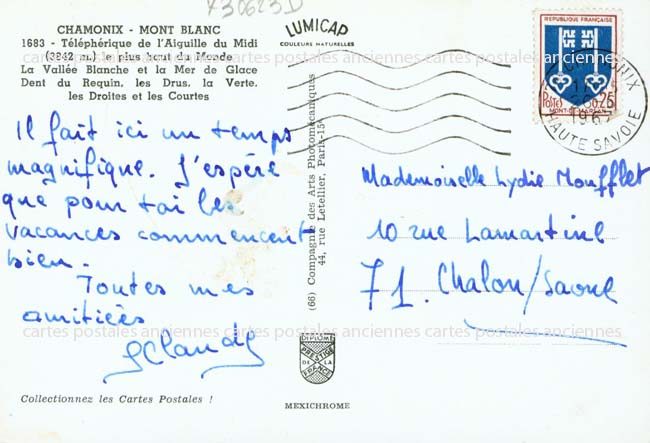 730623D
CHAMONIX - MONT BLANC
1683 - Téléphérique de l'Aiguille du Midi
(3842 m.) le plus haut du Monde
La Vallée Blanche et la Mer de Glace
Dent du Requin, les Drus, la Verte,
les Droites et les Courtes
LUMICAP
COULEURS NATURELLES
REPUBLIQUE FRANÇAISE
Postes 0,25
MONT-DE-MARSAN
CHAMONIX
17
1967
HAUTE SAVOIE
cartes postales anciennes cartes postales anciennes cartes postales anciennes
Il fait ici un temps
magnifique. J'espère
que pour toi les
vacances commencent
bien.
Toutes mes
amitiés
Claude
(66) Compagnie des Arts Photomécaniques
44, rue Letellier, Paris-15e
Mademoiselle Lydie Moufflet
10 rue Lamartine
71. Chalon/Saone
cartes postales anciennes cartes postales anciennes cartes postales anciennes
DIPLOME
PRESTIGE
DE LA
FRANCE
Collectionnez les Cartes Postales !
MEXICHROME